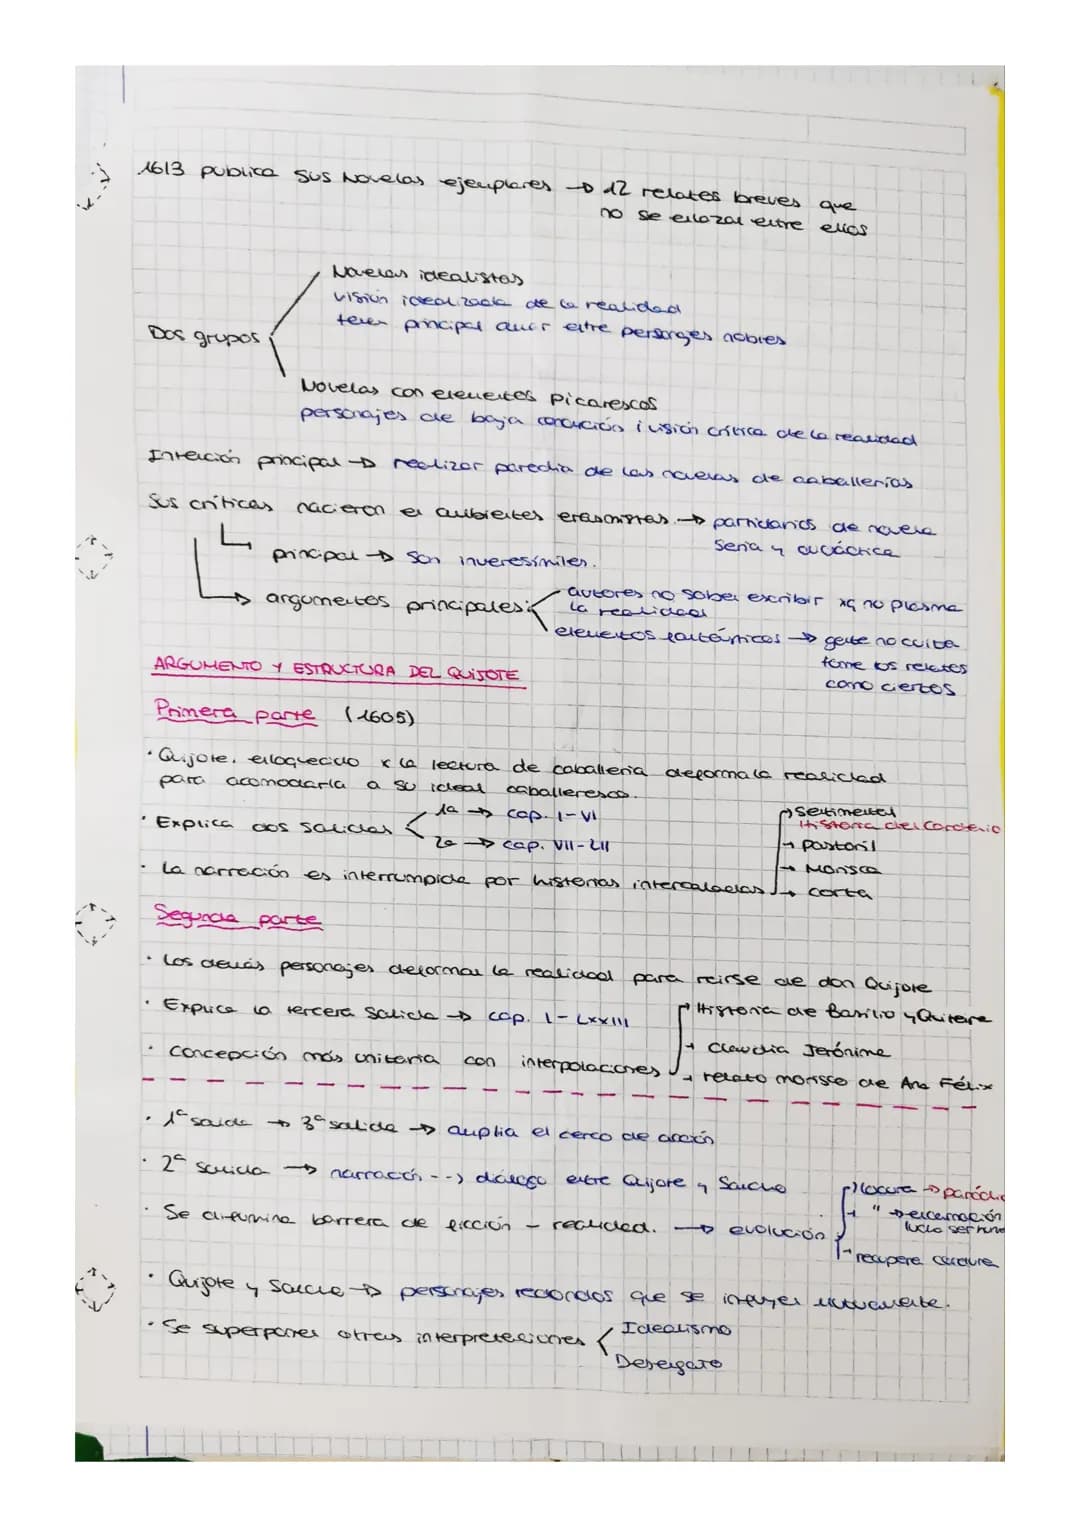 1613 publica sus Novelas ejemplares → 12 relatos breves que
no se enlazan entre ellos
Novelas idealistas
visión idealizada de la realidad
tema principal amor entre personajes nobres
Dos grupos
Novelas con elementos picarescos
personajes de baja condición i visión crítica de la realidad
Intención principal → realizar parodia de las novelas de caballerías
Sus críticas nacieron en ambientes erasmistas. → partidarios de novela
seria y didáctica
principal → son inverosímiles.
argumentos principales:
autores no saben escribir xq no plasma
la realidad
elementos fantásticos → gente no culta
tome los relatos
como ciertos
ARGUMENTO Y ESTRUCTURA DEL QUIJOTE
Primera parte (1605)
· Quijote, enloquecido x la lectura de caballeria deforma la realidad
para acomodarla a su ideal caballeresco.
· Explica dos salidas
1a → cap. I-VI
2a → cap. VII-LII
→ Sentimental
Historia del Cardenio
→ pastoril
→ Morisca
→ corta
· La narración es interrumpida por historias intercaladas
Segunda parte
· Los demás personajes deforman la realidad para reirse de don Quijote
· Explica la tercera salida → cap. I-LXXIII
→ Historia de Basilio y Quiteria
→ Claudia Jerónima
→ relato morisco de Ana Félix
· concepción más unitaria con interpolaciones
· 1ª salida → 3ª salida → amplia el cerco de acción
· 2ª salida → narración --> diálogo entre Quijote y Sancho
· Se difumina barrera de ficción - realidad. → evolución
→ locura → paródia
→ " → encarnación
lucha ser hum
→ recupera cordura
· Quijote y Sancho → personajes redondos que se influyen mutuamente.
· Se superponen otras interpretaciones
Idealismo
Desengaño